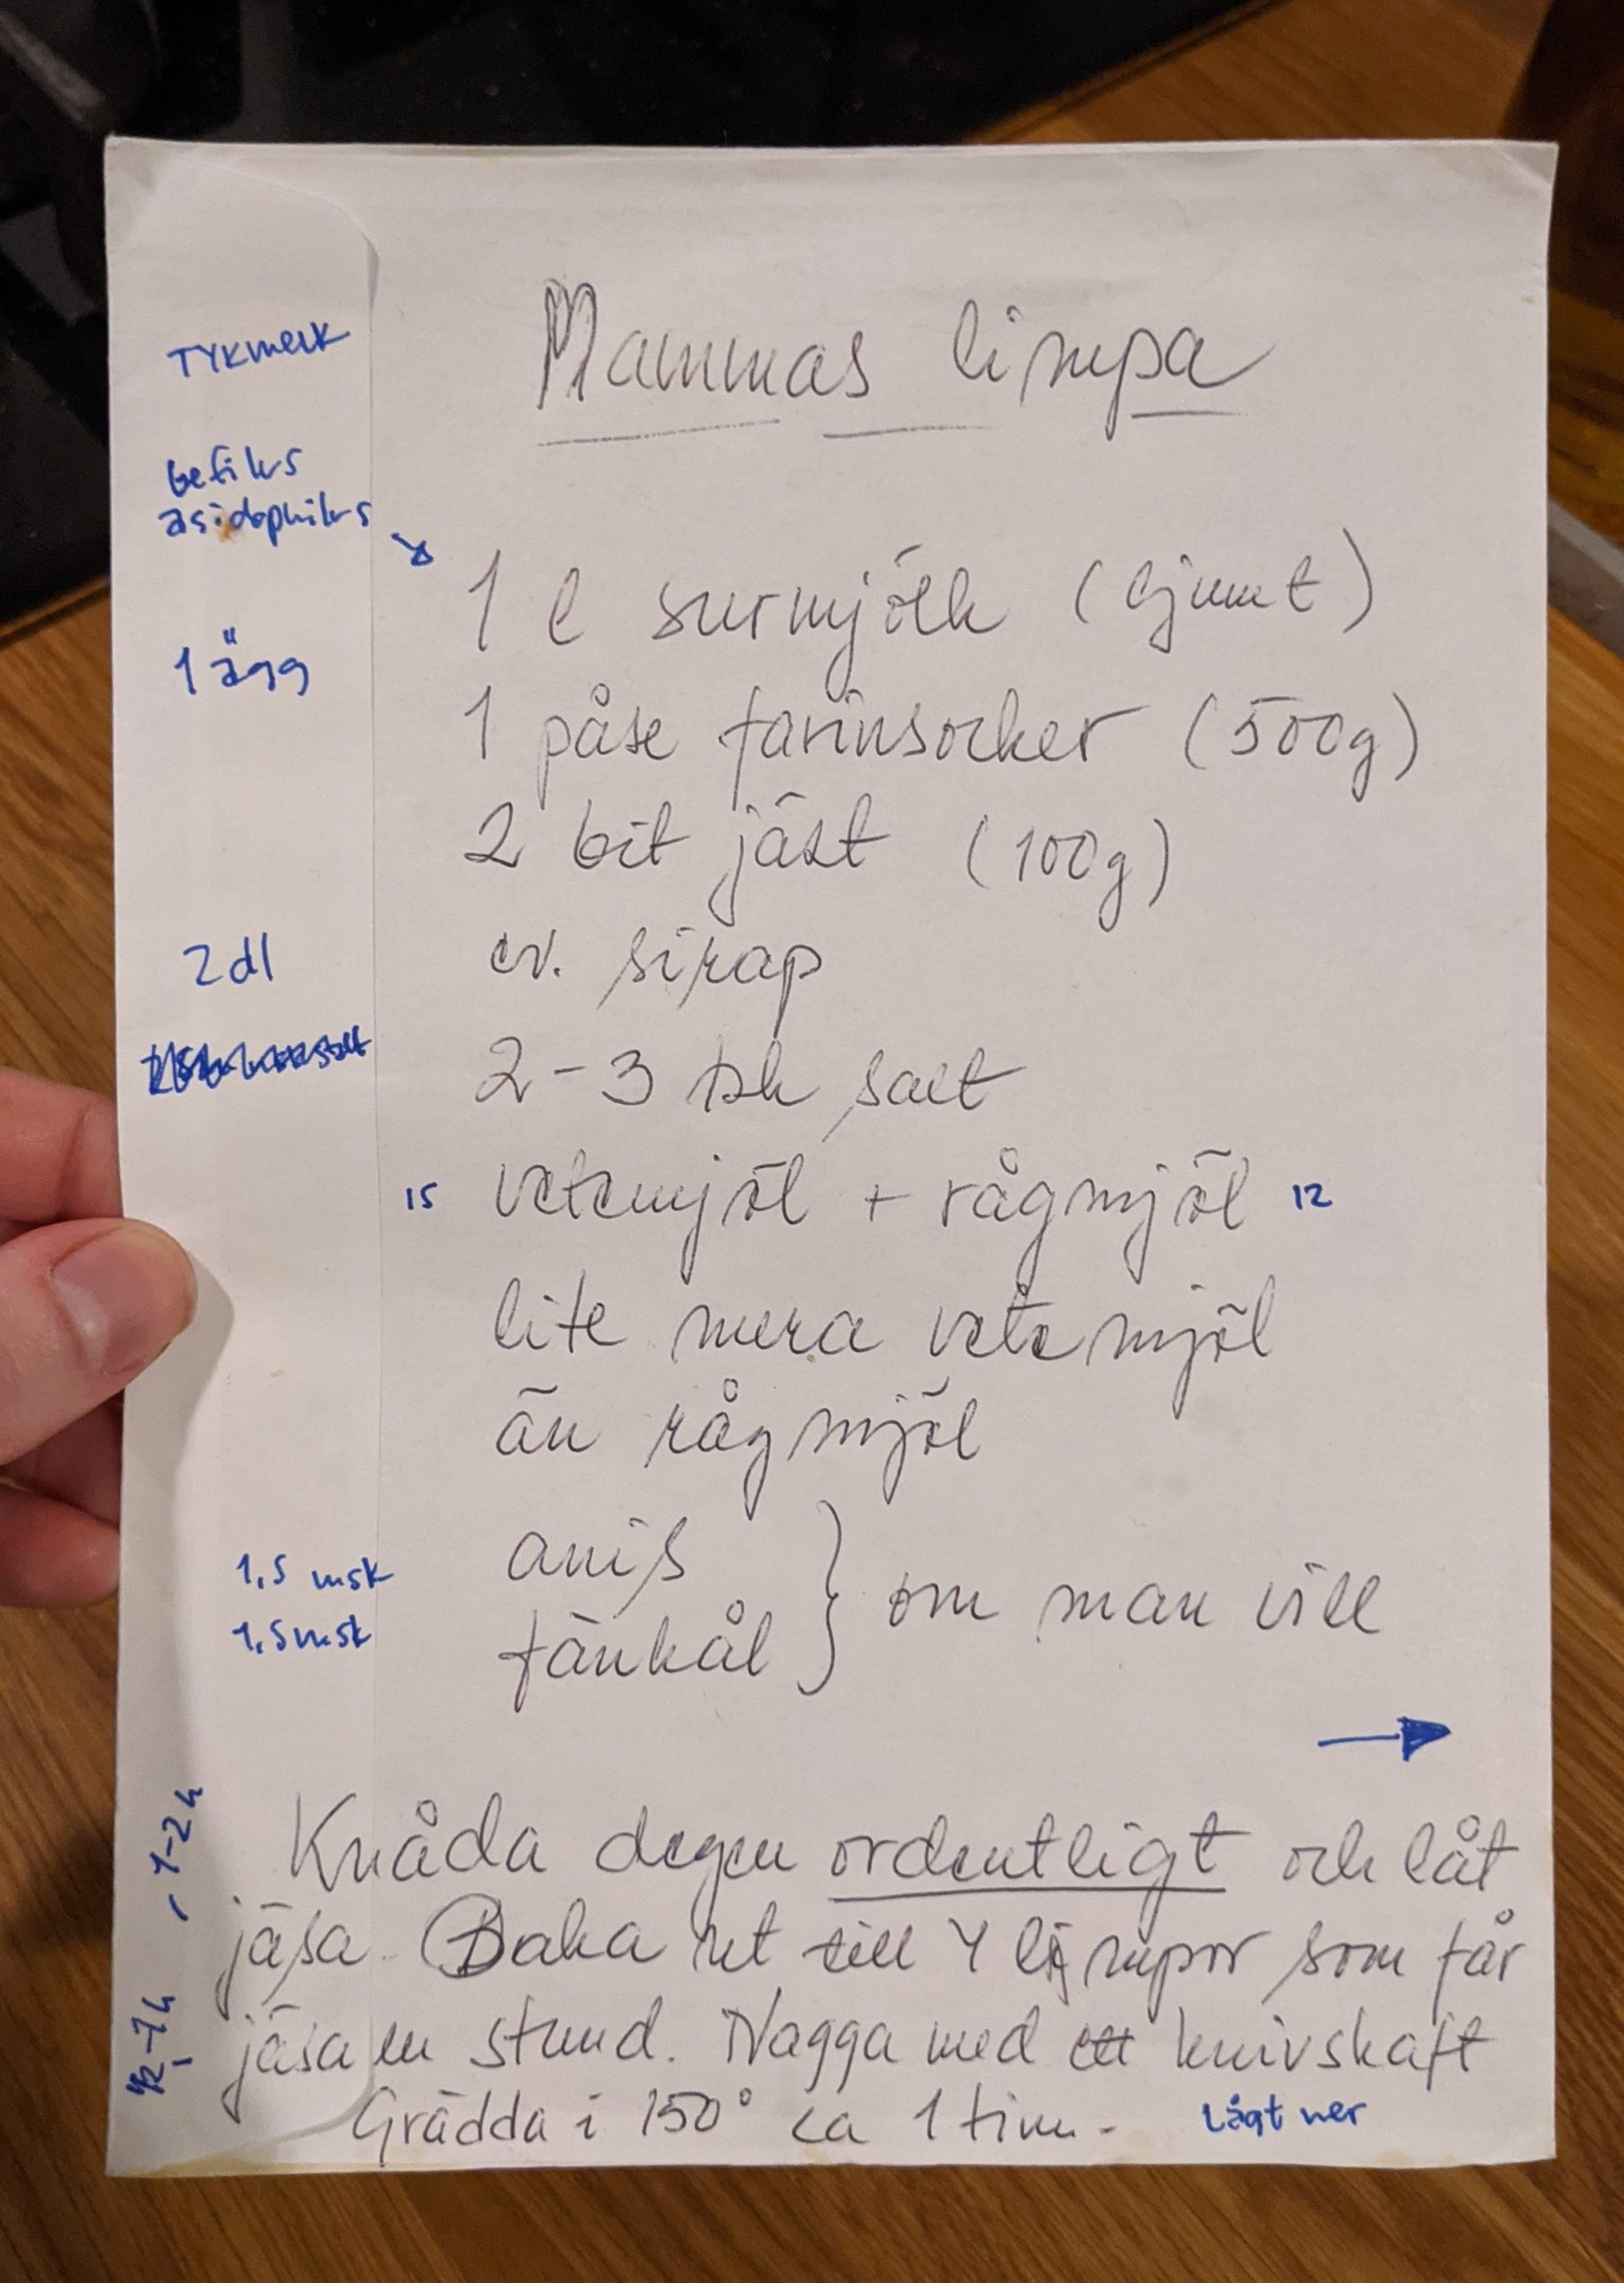 TYKmelk
Mammas limpa
gefiks
asidophiks
1 l surmjölk (ljumt)
1 ägg
1 påse farinsocker (500g)
2 bit jäst (100g)
2dl ev. sirap
2-3 tsk salt
15 vetemjöl + rågmjöl 12
lite mera vetemjöl
än rågmjöl
1,5 msk anis
1,5 msk fänkål } om man vill
→
1-2h
Knåda degen ordentligt och låt
jäsa. Baka ut till 4 limpor som får
1/2-1h
jäsa en stund. Nagga med ett knivskaft
Grädda i 150° ca 1 tim. Lågt ner